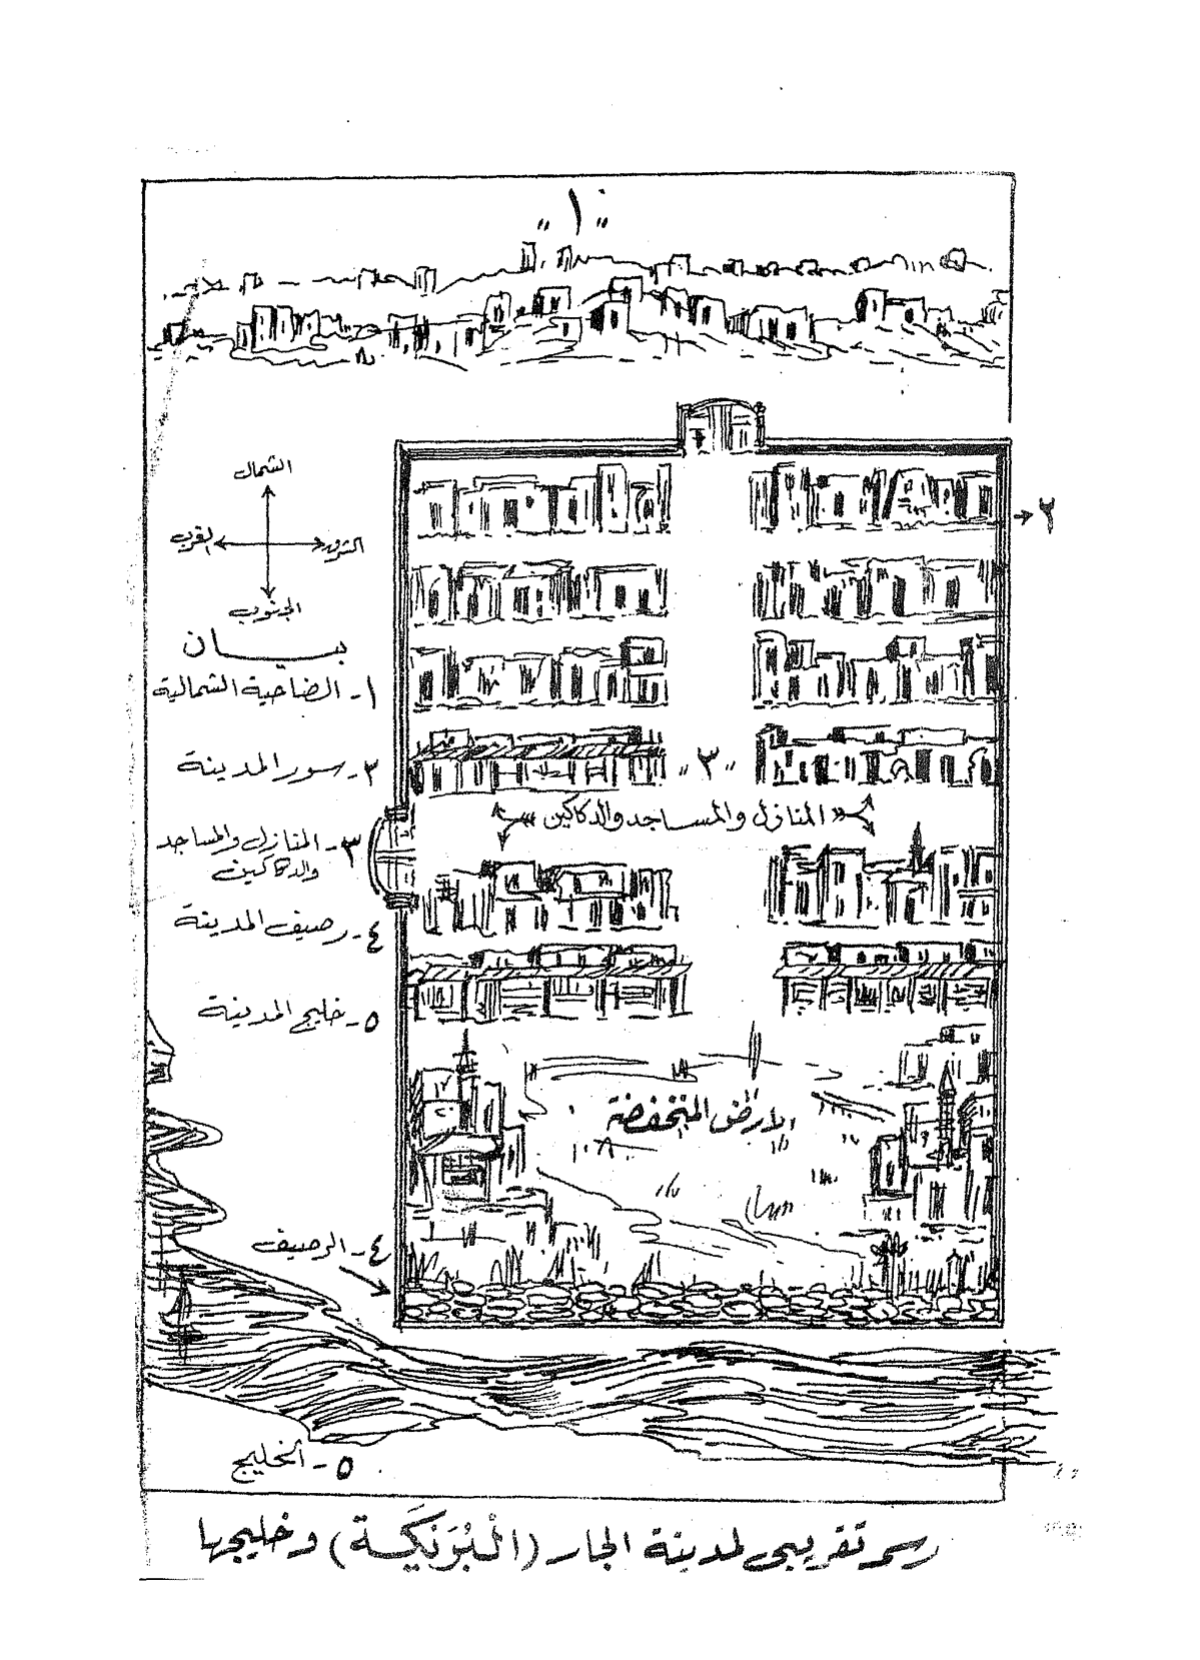 "١"
الشمال
الغرب
الشرق
الجنوب
٢
بيان
١- الضاحية الشمالية
٢- سور المدينة
٣- المنازل والمساجد
والدكاكين
٤- رصيف المدينة
٥- خليج المدينة
"٣"
المنازل والمساجد والدكاكين
الارض المنخفضة
٤- الرصيف
٥- الخليج
رسم تقريبى لمدينة الجار (الْبُرَيْكَة) وخليجها